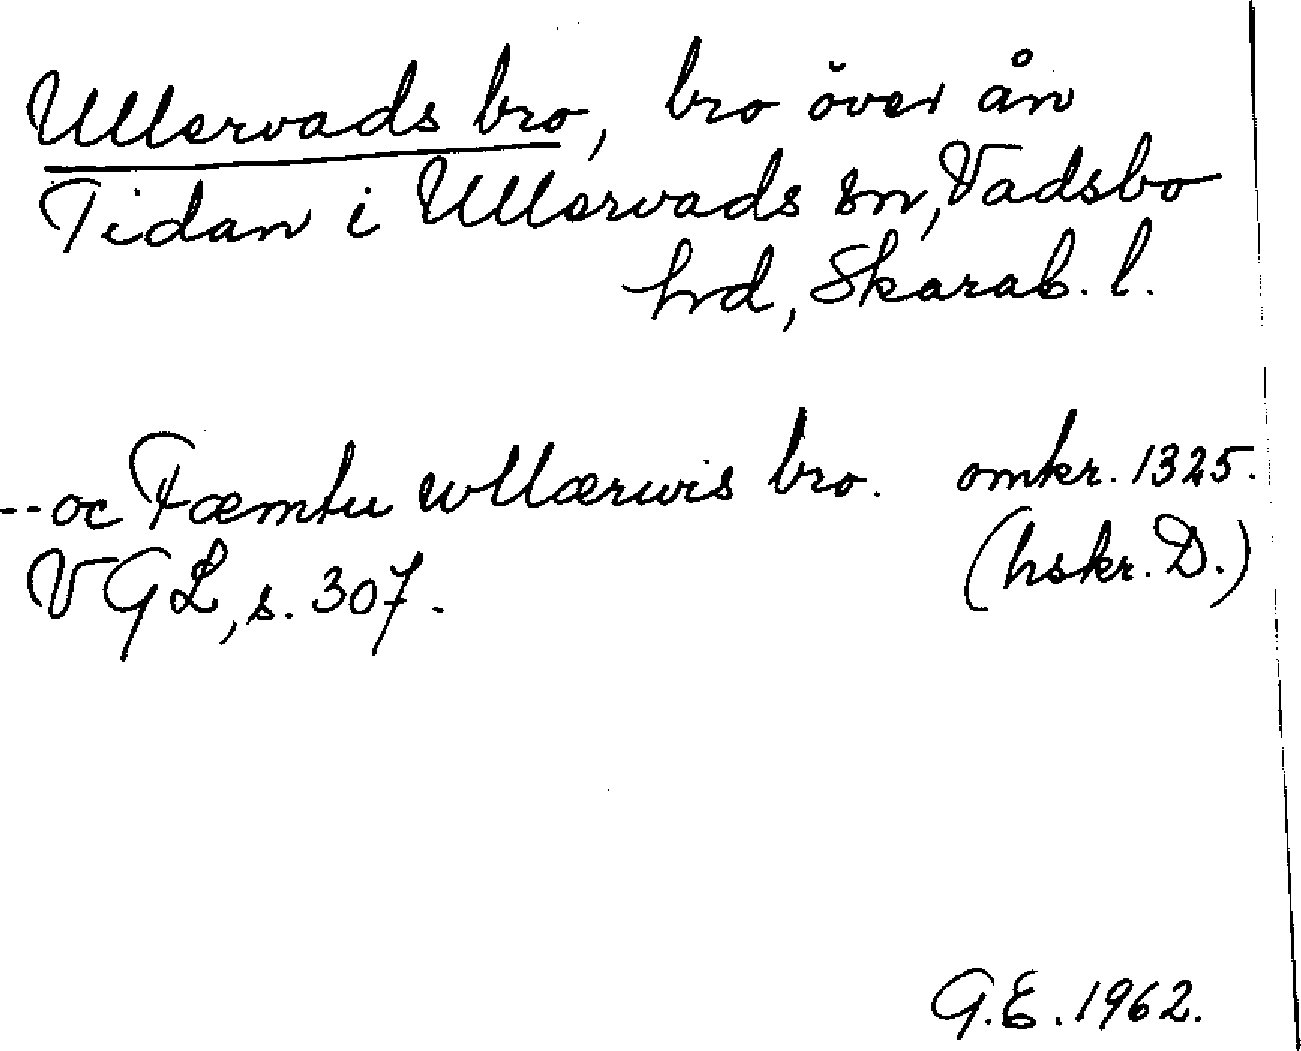 Ullervads bro, bro över ån
Tidan i Ullervads sn, Vadsbo
hrd, Skarab. l.
-- oc Fæmtu wllærwis bro. omkr. 1325.
VGL, s. 307. (hskr. D.)
G.E. 1962.